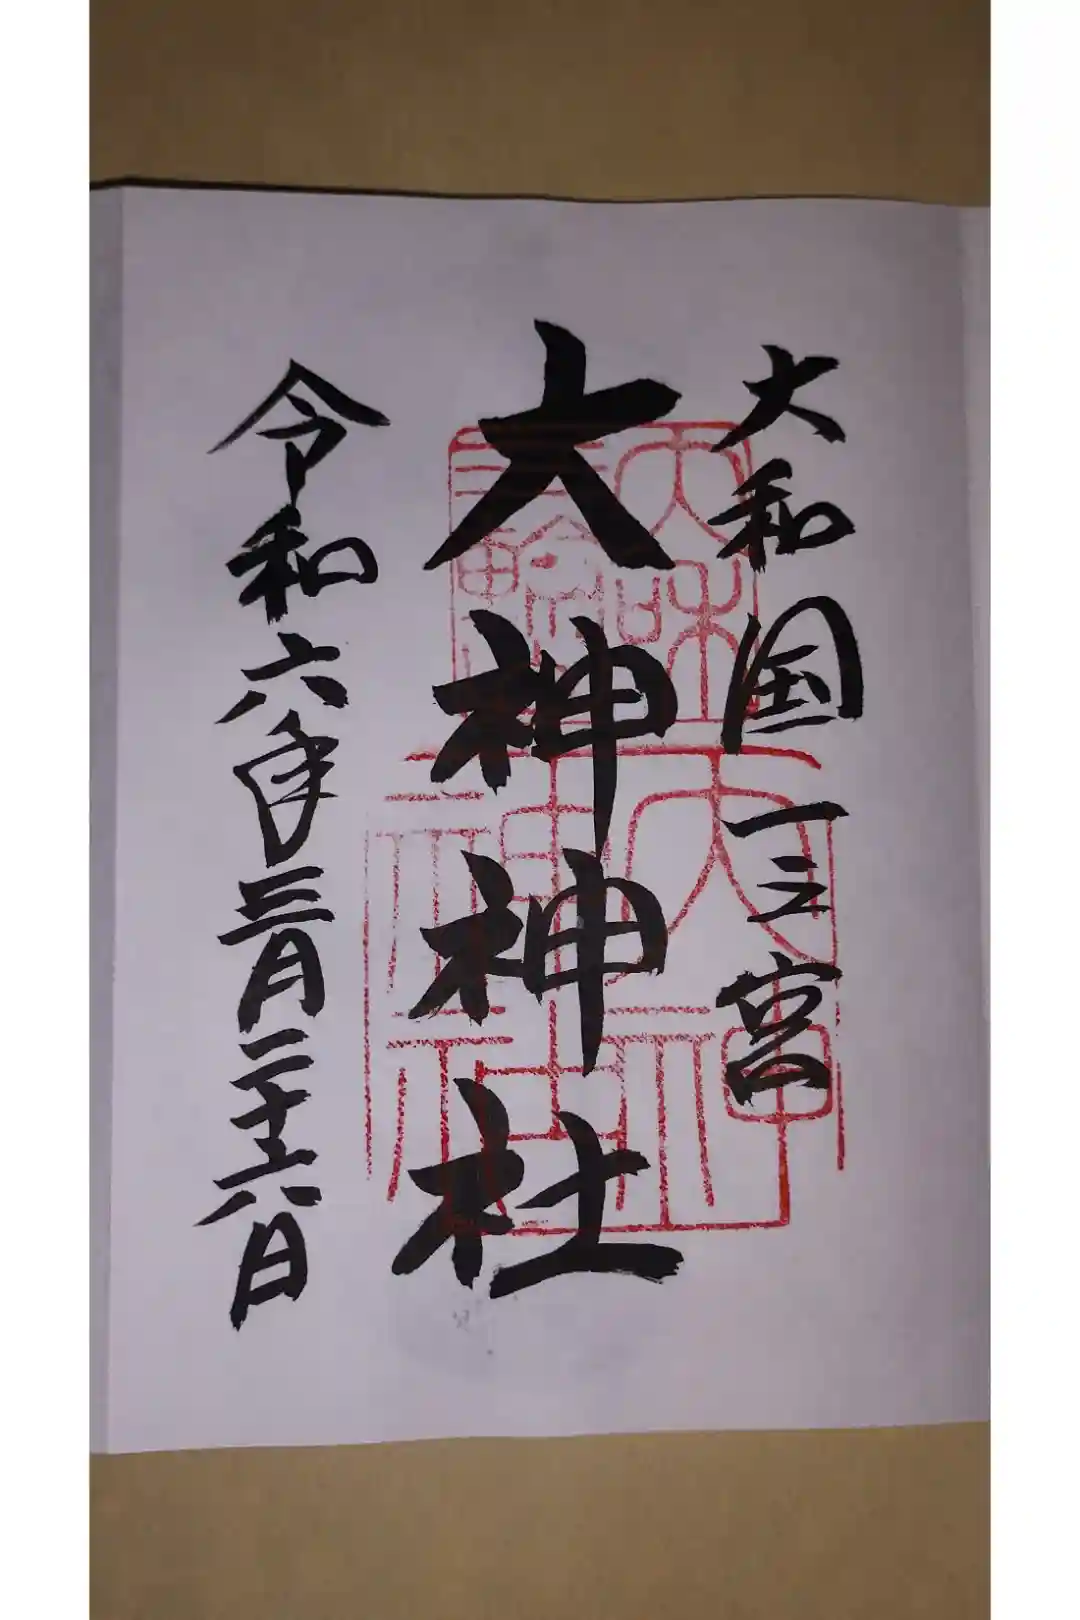 大和国一之宮
大神神社
令和六年三月二十六日
三輪
大神神社